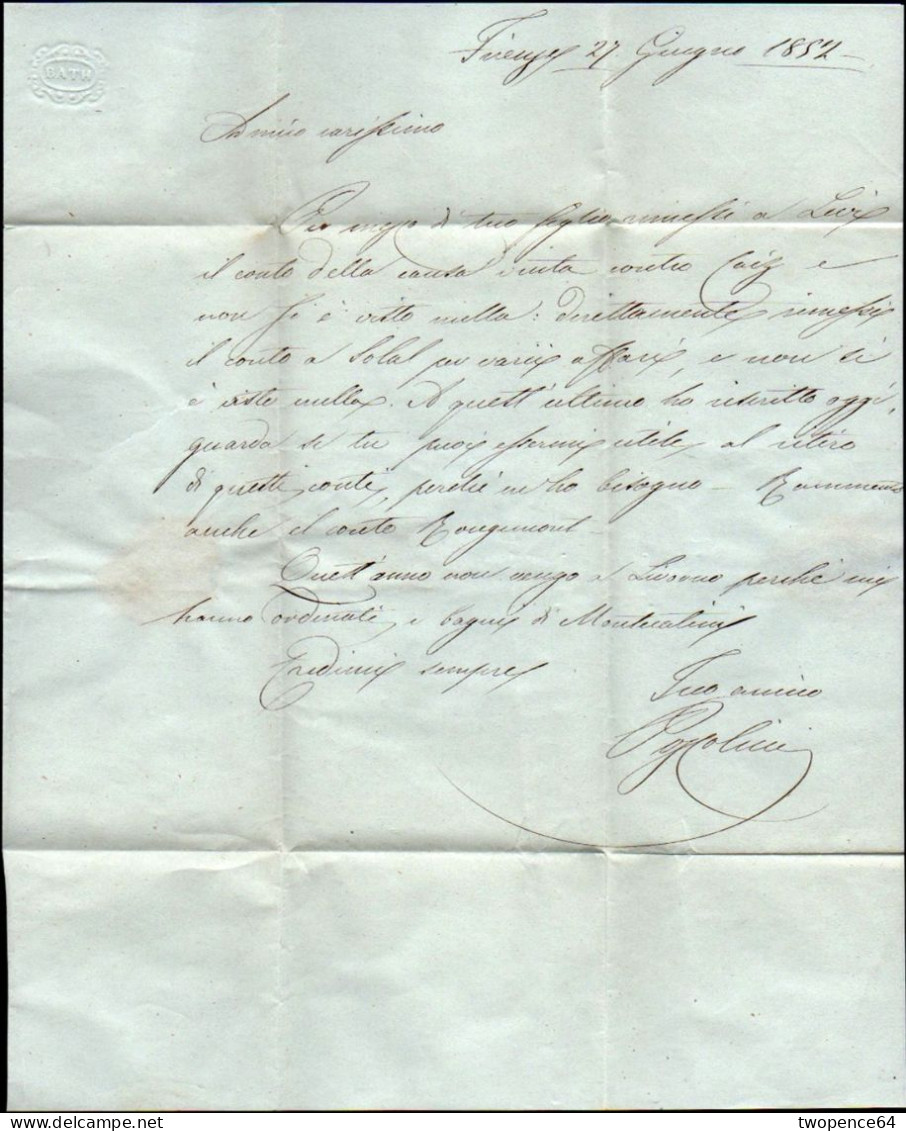 BATH
Firenze 27 Giugno 1852
Amico carissimo
Per mezzo di tuo figlio rimessi a Levi
il conto della causa vinta contro Caiz e
non si è visto nulla: direttamente rimessi
il conto a Solal per varii affari, e non si
è visto nulla. A quest'ultimo ho riscritto oggi,
guarda se tu puoi essermi utile al ritiro
di questi conti, perché ne ho bisogno – Rammento
anche il conto Rougemont –
Quest'anno non vengo a Livorno perché mi
hanno ordinati i bagni di Montecatini
Credimi sempre
Tuo amico
twopence64